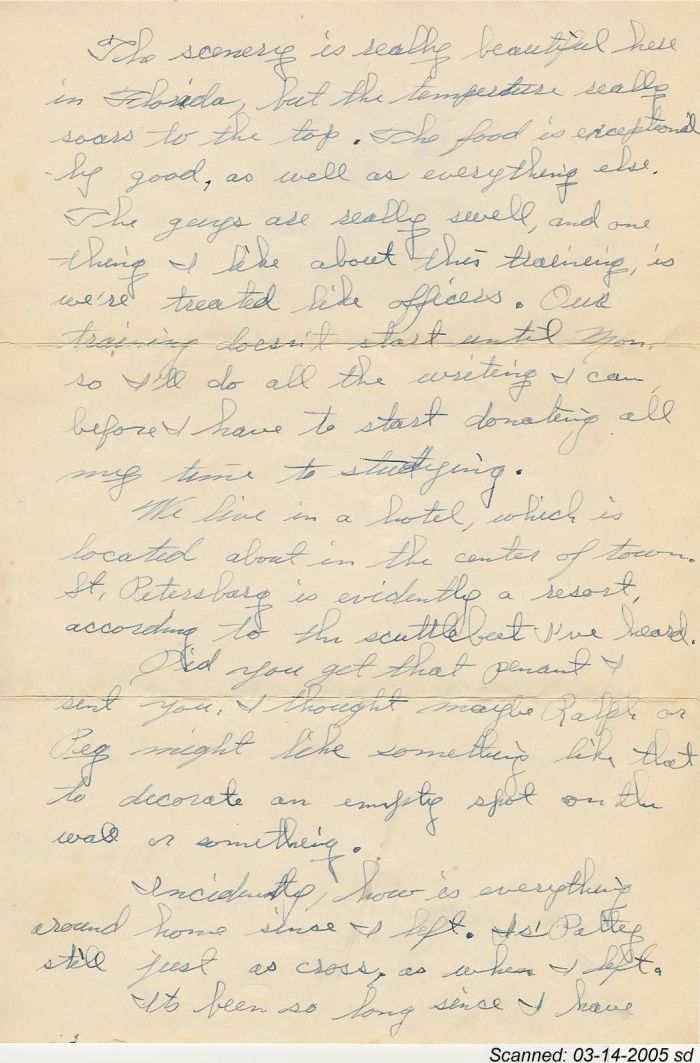 The scenery is really beautiful here
in Florida, but the temperture really
soars to the top. The food is exceptional
-ly good, as well as everything else.
The guys are really swell, and one
thing I like about this training, is
we're treated like officers. Our
training doesn't start until Mon.
so I'll do all the writing I can
before I have to start donating all
my time to studying.
We live in a hotel, which is
located about in the center of town.
St. Petersburg is evidently a resort,
according to the scuttlebeet I've heard.
Did you get that penant I
sent you. I thought maybe Ralph or
Peg might like something like that
to decorate an empty spot on the
wall or something.
Incidently, how is everything
around home since I left. Is Patty
still just as cross, as when I left.
Its been so long since I have
Scanned: 03-14-2005 sd